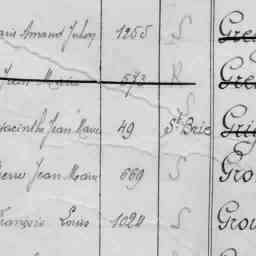 Amand Julien 1255 S Gre
Jean Marie 573 R Gre
Hyacinthe Jean Marie 49 St Brie Gri
Pierre Jean Marie 669 S Gro
François Louis 1024 S Grou